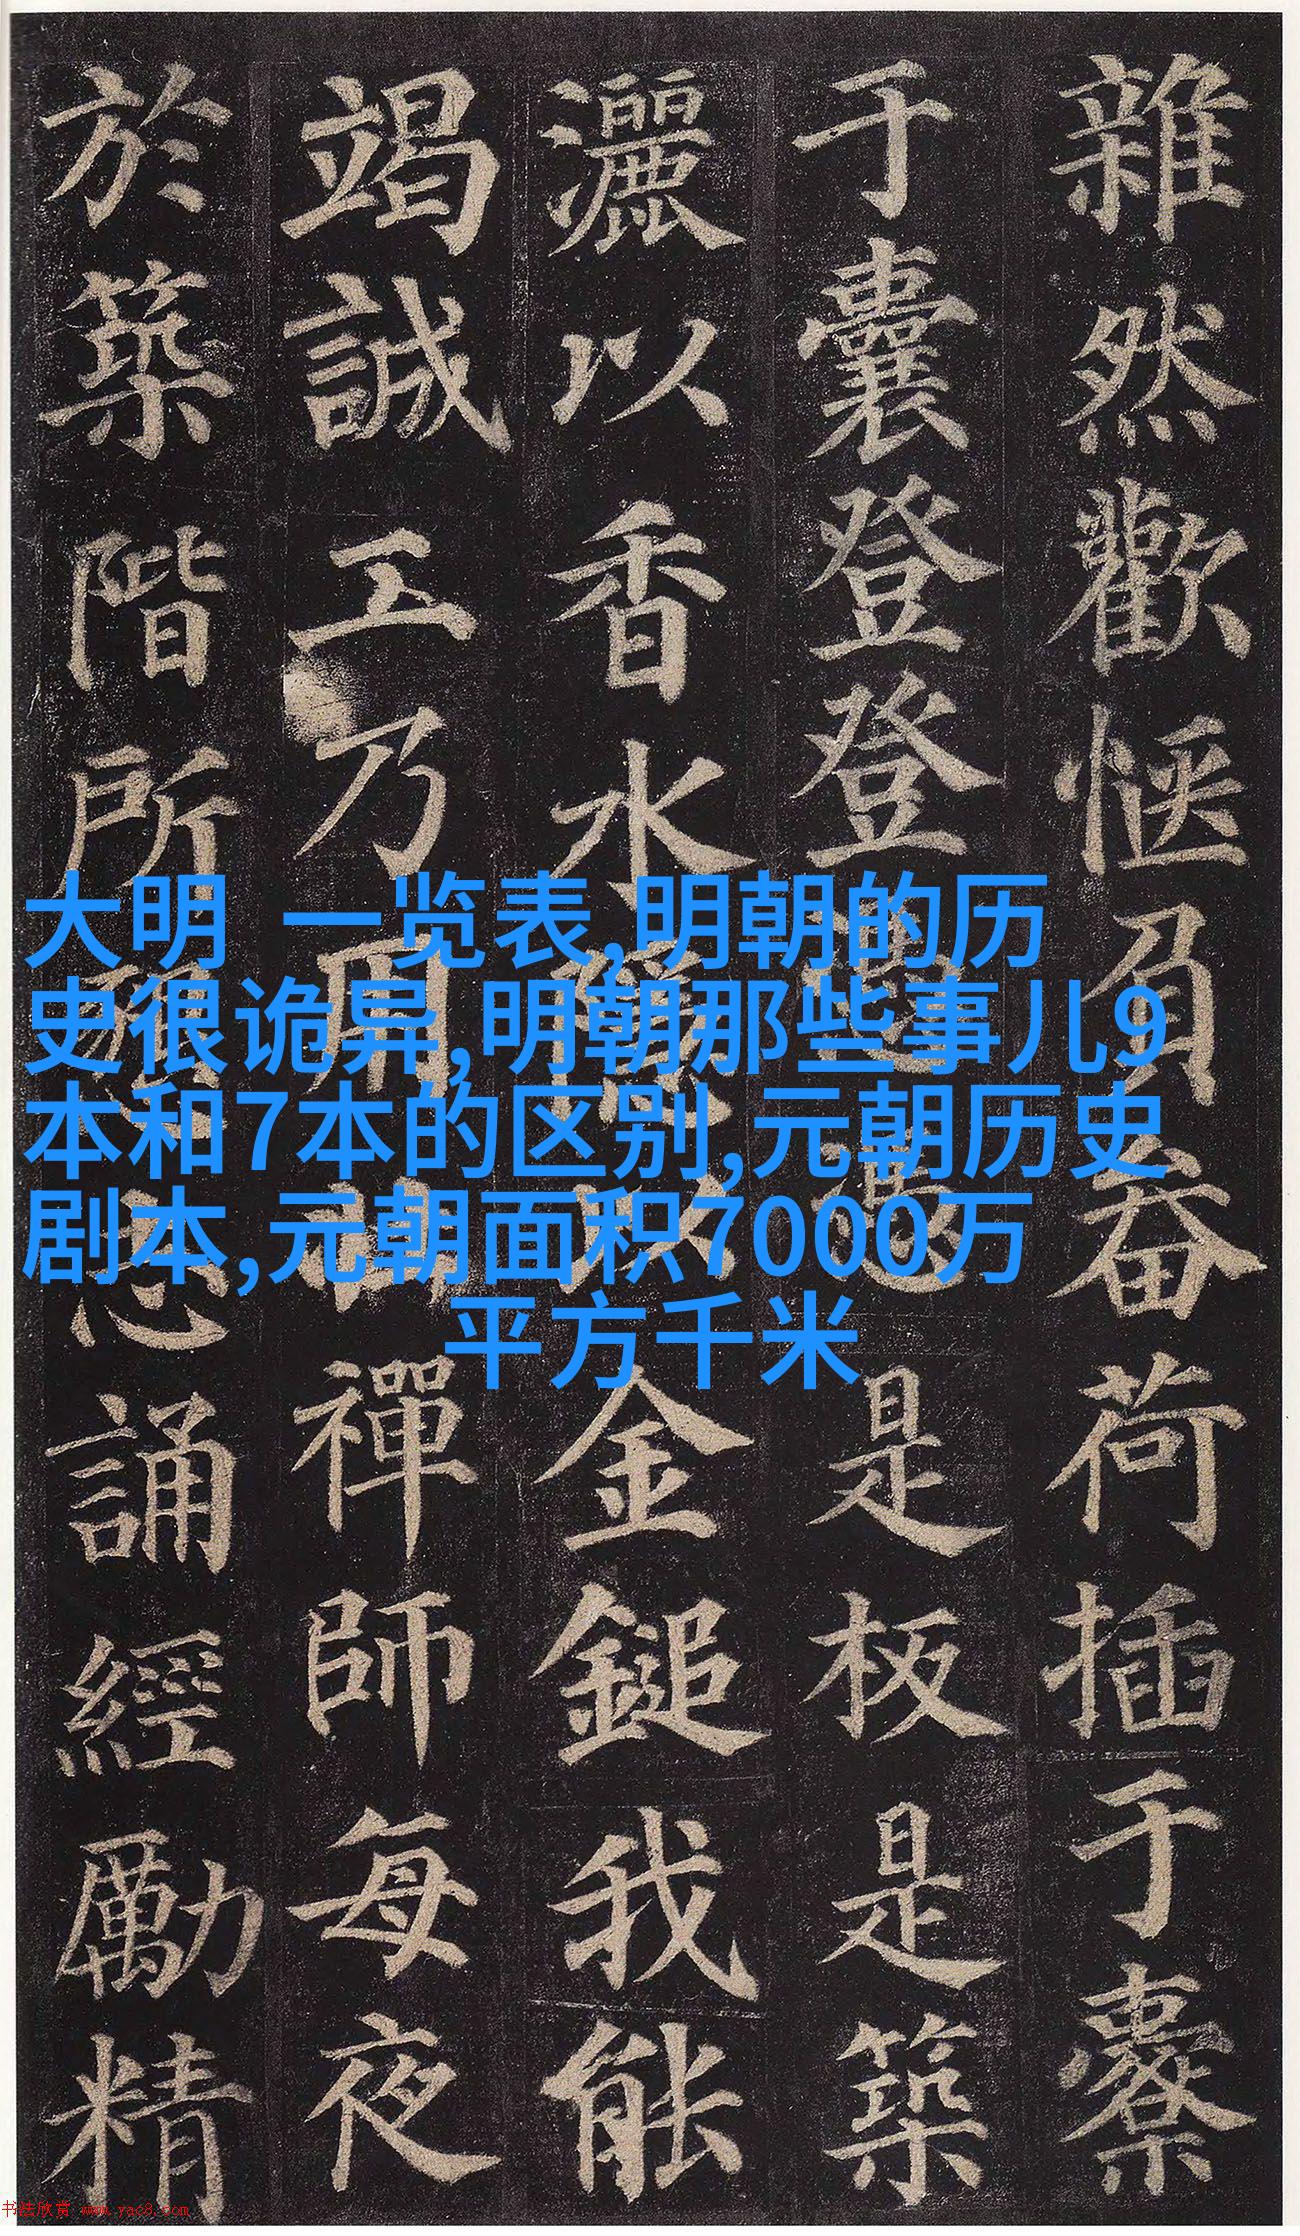 雜然歡愜負畚荷插于橐
于囊登登憑憑是板是築
灑以香水隱以金鎚我能
竭誠工乃用壯禪師每夜
於築階所懇志誦經勵精
大明 一览表,明朝的历
史很诡异,明朝那些事儿9
本和7本的区别,元朝历史
剧本,元朝面积7000万
平方千米
书法欣赏 www.yac8.com